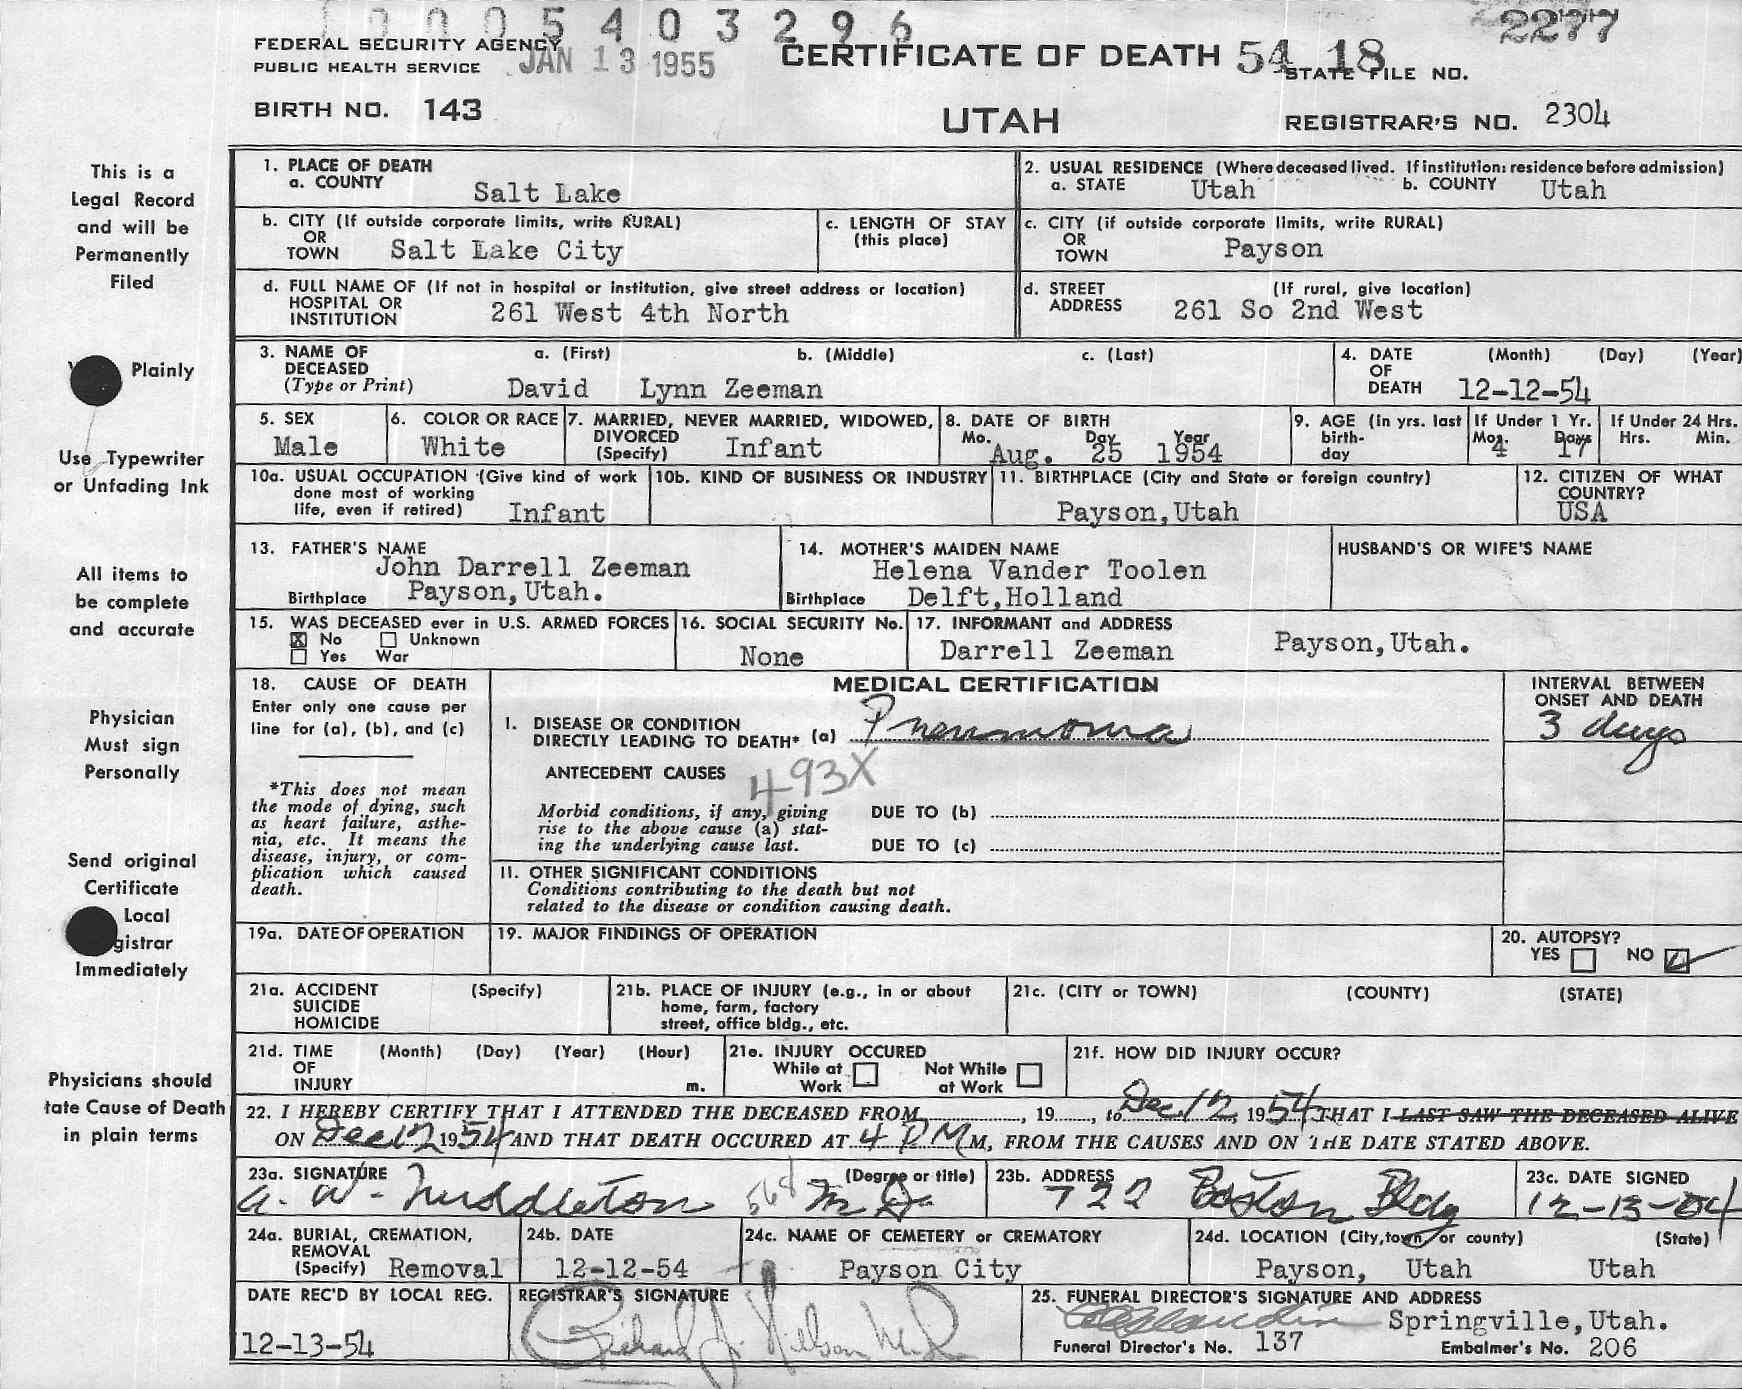 0005403296
2277
FEDERAL SECURITY AGENCY
PUBLIC HEALTH SERVICE
JAN 13 1955
CERTIFICATE OF DEATH
54 18
STATE FILE NO.
BIRTH NO. 143
UTAH
REGISTRAR'S NO. 2304
This is a
Legal Record
and will be
Permanently
Filed
Plainly
Use Typewriter
or Unfading Ink
All items to
be complete
and accurate
Physician
Must sign
Personally
Send original
Certificate
Local
gistrar
Immediately
Physicians should
tate Cause of Death
in plain terms
1. PLACE OF DEATH
a. COUNTY
Salt Lake
2. USUAL RESIDENCE (Where deceased lived. If institution: residence before admission)
a. STATE Utah b. COUNTY Utah
b. CITY (If outside corporate limits, write RURAL)
OR
TOWN Salt Lake City
c. LENGTH OF STAY
(this place)
c. CITY (if outside corporate limits, write RURAL)
OR
TOWN Payson
d. FULL NAME OF (If not in hospital or institution, give street address or location)
HOSPITAL OR
INSTITUTION 261 West 4th North
d. STREET (If rural, give location)
ADDRESS 261 So 2nd West
3. NAME OF a. (First) b. (Middle) c. (Last)
DECEASED
(Type or Print) David Lynn Zeeman
4. DATE (Month) (Day) (Year)
OF
DEATH 12-12-54
5. SEX
Male
6. COLOR OR RACE
White
7. MARRIED, NEVER MARRIED, WIDOWED,
DIVORCED
(Specify) Infant
8. DATE OF BIRTH
Mo. Day Year
Aug. 25 1954
9. AGE (in yrs. last
birth-
day
If Under 1 Yr.
Mos. Days
4 17
If Under 24 Hrs.
Hrs. Min.
10a. USUAL OCCUPATION (Give kind of work
done most of working
life, even if retired) Infant
10b. KIND OF BUSINESS OR INDUSTRY
11. BIRTHPLACE (City and State or foreign country)
Payson, Utah
12. CITIZEN OF WHAT
COUNTRY?
USA
13. FATHER'S NAME
John Darrell Zeeman
Birthplace Payson, Utah.
14. MOTHER'S MAIDEN NAME
Helena Vander Toolen
Birthplace Delft, Holland
HUSBAND'S OR WIFE'S NAME
15. WAS DECEASED ever in U.S. ARMED FORCES
X No Unknown
Yes War
16. SOCIAL SECURITY No.
None
17. INFORMANT and ADDRESS
Darrell Zeeman Payson, Utah.
18. CAUSE OF DEATH
Enter only one cause per
line for (a), (b), and (c)
*This does not mean
the mode of dying, such
as heart failure, asthe-
nia, etc. It means the
disease, injury, or com-
plication which caused
death.
MEDICAL CERTIFICATION
I. DISEASE OR CONDITION
DIRECTLY LEADING TO DEATH* (a) Pneumonia
ANTECEDENT CAUSES 493X
Morbid conditions, if any, giving
rise to the above cause (a) stat-
ing the underlying cause last.
DUE TO (b)
DUE TO (c)
II. OTHER SIGNIFICANT CONDITIONS
Conditions contributing to the death but not
related to the disease or condition causing death.
INTERVAL BETWEEN
ONSET AND DEATH
3 days
19a. DATE OF OPERATION
19. MAJOR FINDINGS OF OPERATION
20. AUTOPSY?
YES NO
21a. ACCIDENT (Specify)
SUICIDE
HOMICIDE
21b. PLACE OF INJURY (e.g., in or about
home, farm, factory
street, office bldg., etc.
21c. (CITY or TOWN) (COUNTY) (STATE)
21d. TIME (Month) (Day) (Year) (Hour)
OF
INJURY m.
21e. INJURY OCCURED
While at Not While
Work at Work
21f. HOW DID INJURY OCCUR?
22. I HEREBY CERTIFY THAT I ATTENDED THE DECEASED FROM, 19, to Dec. 12, 1954 THAT I LAST SAW THE DECEASED ALIVE
ON Dec 12 1954 AND THAT DEATH OCCURED AT 4 PM M, FROM THE CAUSES AND ON THE DATE STATED ABOVE.
23a. SIGNATURE (Degree or title)
A. W. Middleton 568 M D
23b. ADDRESS
722 Boston Bldg
23c. DATE SIGNED
12-13-54
24a. BURIAL, CREMATION,
REMOVAL
(Specify) Removal
24b. DATE
12-12-54
24c. NAME OF CEMETERY or CREMATORY
Payson City
24d. LOCATION (City, town, or county) (State)
Payson, Utah Utah
DATE REC'D BY LOCAL REG.
12-13-54
REGISTRAR'S SIGNATURE
Richard J. Nielson
25. FUNERAL DIRECTOR'S SIGNATURE AND ADDRESS
Springville, Utah.
Funeral Director's No. 137 Embalmer's No. 206